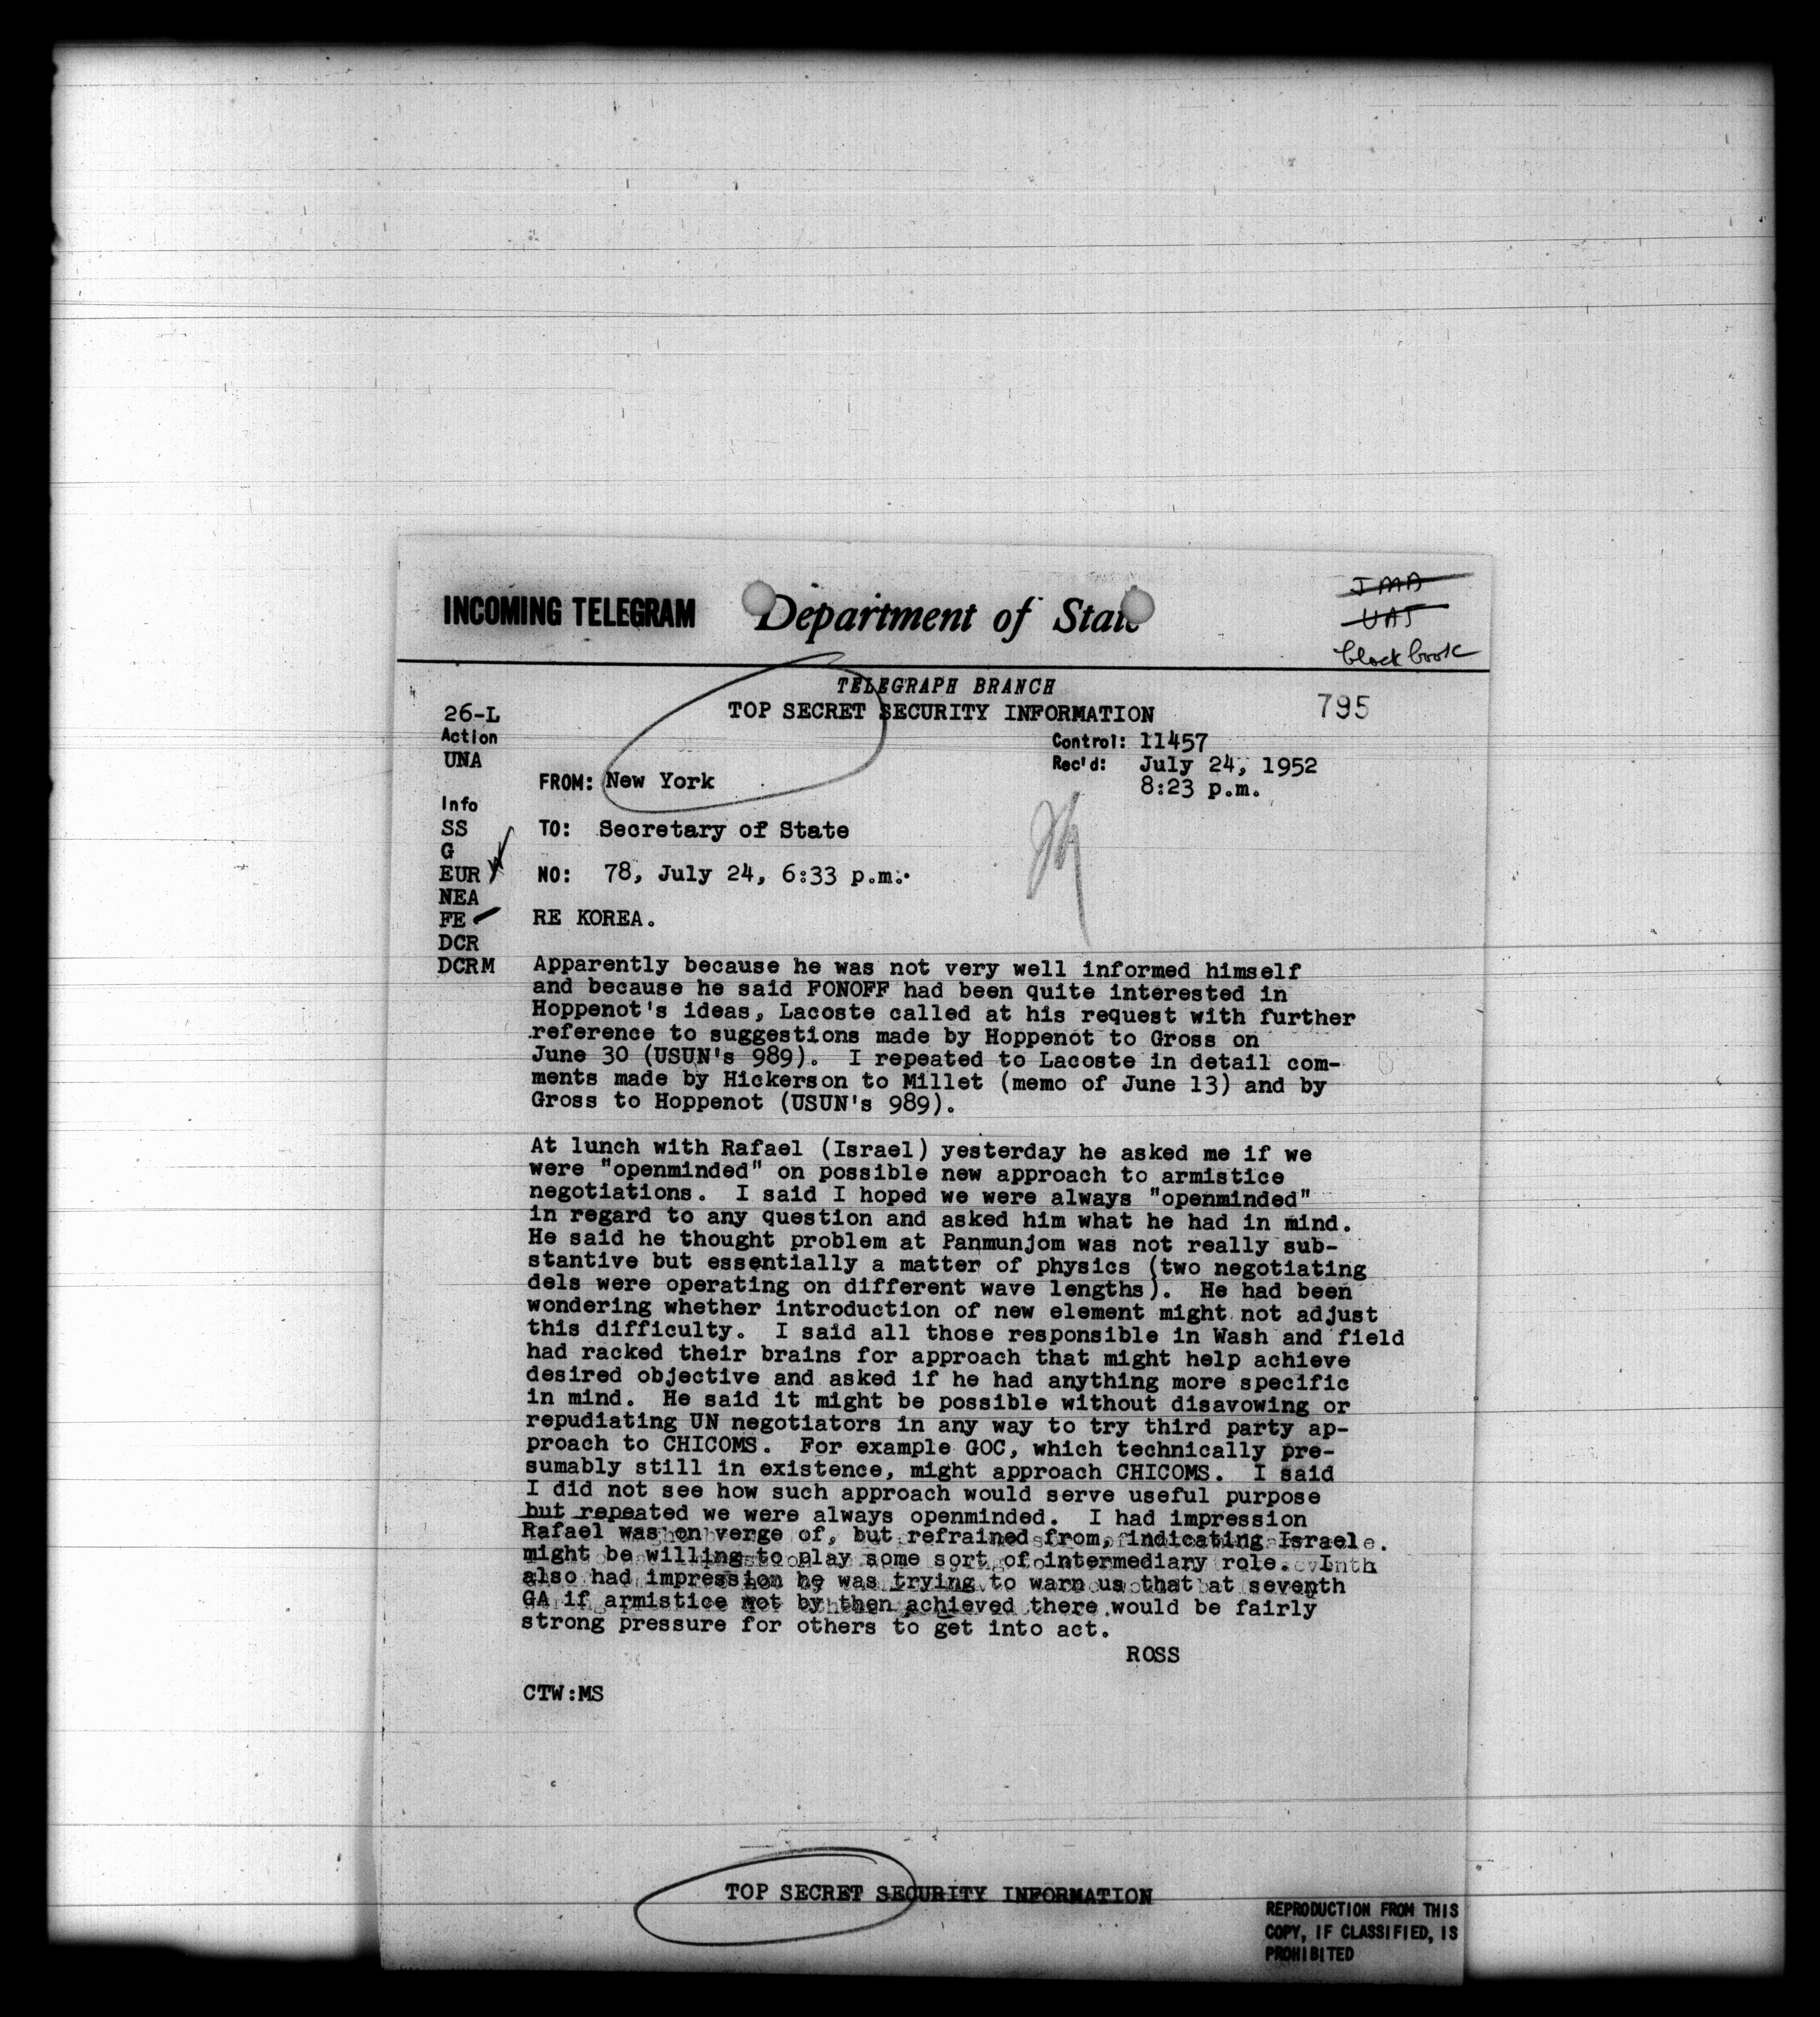 INCOMING TELEGRAM Department of State
JMA
UAJ
block book
TELEGRAPH BRANCH
TOP SECRET SECURITY INFORMATION
795
26-L
Action
UNA
Control: 11457
Rec'd: July 24, 1952
8:23 p.m.
FROM: New York
Info
SS
G
EUR
NEA
FE
DCR
DCRM
TO: Secretary of State
NO: 78, July 24, 6:33 p.m.
RE KOREA.
Apparently because he was not very well informed himself
and because he said FONOFF had been quite interested in
Hoppenot's ideas, Lacoste called at his request with further
reference to suggestions made by Hoppenot to Gross on
June 30 (USUN's 989). I repeated to Lacoste in detail com-
ments made by Hickerson to Millet (memo of June 13) and by
Gross to Hoppenot (USUN's 989).
At lunch with Rafael (Israel) yesterday he asked me if we
were "openminded" on possible new approach to armistice
negotiations. I said I hoped we were always "openminded"
in regard to any question and asked him what he had in mind.
He said he thought problem at Panmunjom was not really sub-
stantive but essentially a matter of physics (two negotiating
dels were operating on different wave lengths). He had been
wondering whether introduction of new element might not adjust
this difficulty. I said all those responsible in Wash and field
had racked their brains for approach that might help achieve
desired objective and asked if he had anything more specific
in mind. He said it might be possible without disavowing or
repudiating UN negotiators in any way to try third party ap-
proach to CHICOMS. For example GOC, which technically pre-
sumably still in existence, might approach CHICOMS. I said
I did not see how such approach would serve useful purpose
but repeated we were always openminded. I had impression
Rafael was on verge of, but refrained from, indicating Israel
might be willing to play some sort of intermediary role. I
also had impression he was trying to warn us that at seventh
GA if armistice not by then achieved there would be fairly
strong pressure for others to get into act.
ROSS
CTW:MS
TOP SECRET SECURITY INFORMATION
REPRODUCTION FROM THIS
COPY, IF CLASSIFIED, IS
PROHIBITED